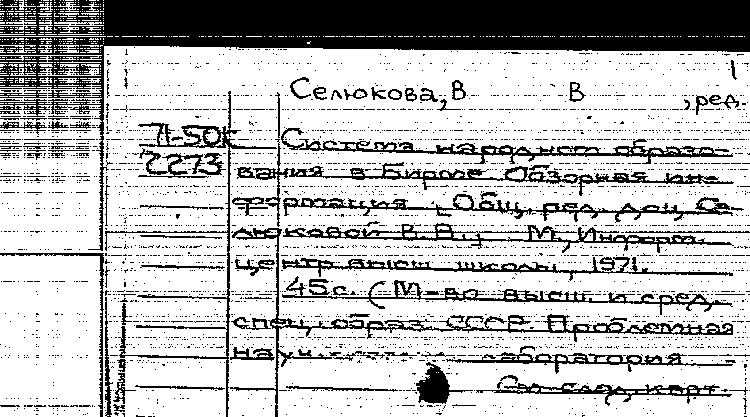 1
Селюкова, В В , ред.
71-50к Система народного образо-
2273 вания в Бирме Обзорная ин-
формация [Общ. ред. доц. Се-
люковой В.В.] М., Информ.
центр высш. школы, 1971.
45с. (М-во высш. и сред.
спец. образ. СССР. Проблемная
науч. лаборатория
См. след. карт.